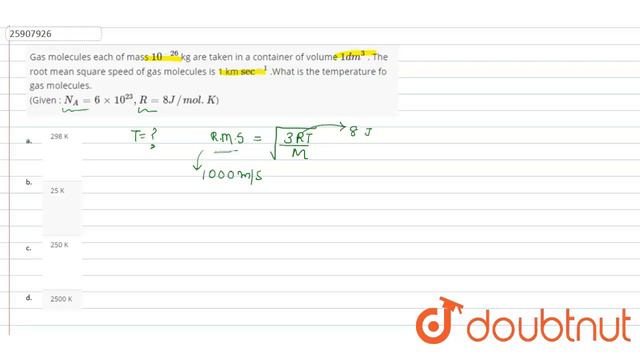 25907926
Gas molecules each of mass 10⁻²⁶ kg are taken in a container of volume 1dm³. The
root mean square speed of gas molecules is 1 km sec⁻¹ .What is the temperature fo
gas molecules.
(Given : N_A = 6 × 10²³, R = 8J/mol.K)
T= ?
R.M.S = √(3RT/M) → 8 J
1000m/s
a. 298 K
b. 25 K
c. 250 K
d. 2500 K
doubtnut